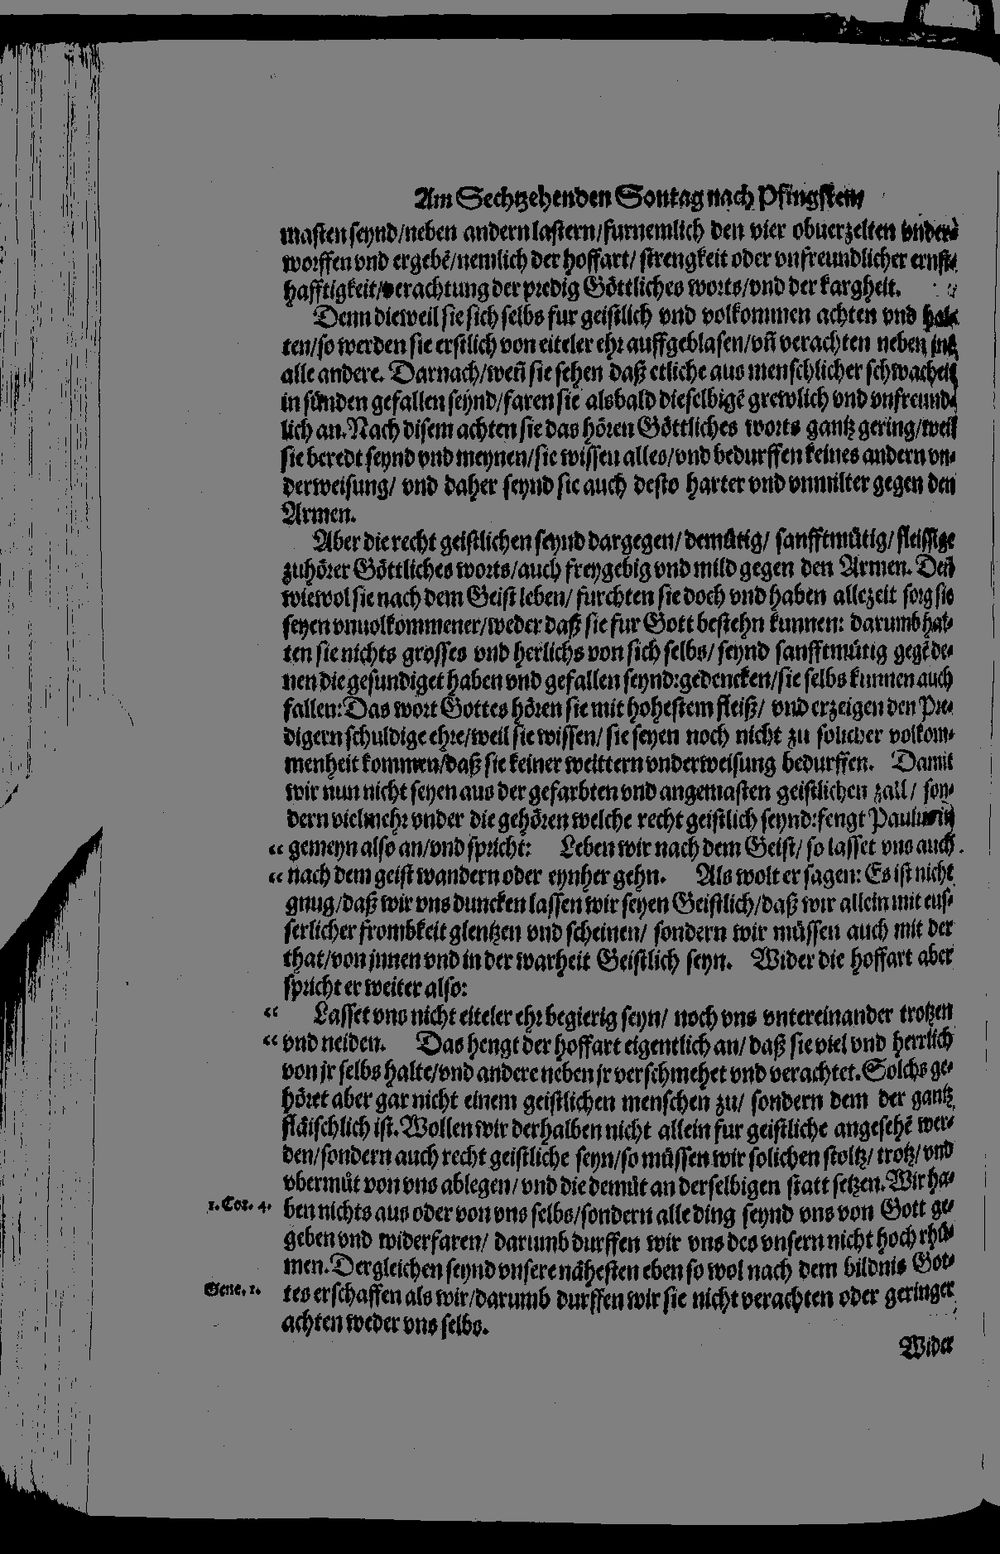 Am Sechtzehenden Sontag nach Pfingsten
masten seynd/neben andern lastern/furnemlich den vier obuerzelten vnder
worffen vnd ergebẽ/nemlich der hoffart/ strengkeit oder vnfreundlicher ernst-
hafftigkeit/verachtung der predig Göttliches worts/vnd der kargheit.
Denn dieweil sie sich selbs fur geistlich vnd volkommen achten vnd hal-
ten/so werden sie erstlich von eiteler ehr auffgeblasen/vñ verachten neben jnẽ
alle andere. Darnach/weñ sie sehen daß etliche aus menschlicher schwacheit
in sünden gefallen seynd/faren sie alsbald dieselbigẽ grewlich vnd vnfreund-
lich an. Nach disem achten sie das hören Göttliches worts gantz gering/weil
sie beredt seynd vnd meynen/sie wissen alles/vnd bedurffen keines andern vn-
derweisung/ vnd daher seynd sie auch desto harter vnd vnmilter gegen den
Armen.
Aber die recht geistlichen seynd dargegen/ demütig/ sanfftmütig/ fleissige
zuhörer Göttliches worts/auch freygebig vnd mild gegen den Armen. Deñ
wiewol sie nach dem Geist leben/ furchten sie doch vnd haben allezeit sorg sie
seyen vnuolkommener/weder daß sie fur Gott bestehn kunnen: darumb hal-
ten sie nichts grosses vnd herlichs von sich selbs/ seynd sanfftmütig gegẽ de-
nen die gesundiget haben vnd gefallen seynd:gedencken/sie selbs kunnen auch
fallen: Das wort Gottes hören sie mit hohestem fleiß/ vnd erzeigen den Pre-
digern schuldige ehre/weil sie wissen/ sie seyen noch nicht zu solicher volkom-
menheit kommen/daß sie keiner weittern vnderweisung bedurffen. Damit
wir nun nicht seyen aus der gefarbten vnd angemasten geistlichen zall/ son-
dern vielmehr vnder die gehören welche recht geistlich seynd:fengt Paulus in
“ gemeyn also an/vnd spricht: Leben wir nach dem Geist/ so lasset vns auch
“ nach dem geist wandern oder eynher gehn. Als wolt er sagen: Es ist nicht
gnug/daß wir vns duncken lassen wir seyen Geistlich/daß wir allein mit eus-
serlicher frombkeit glentzen vnd scheinen/ sondern wir müssen auch mit der
that/von jnnen vnd in der warheit Geistlich seyn. Wider die hoffart aber
spricht er weiter also:
“ Lasset vns nicht eiteler ehr begierig seyn/ noch vns vntereinander trotzen
“ vnd neiden. Das hengt der hoffart eigentlich an/ daß sie viel vnd herrlich
von jr selbs halte/vnd andere neben jr verschmehet vnd verachtet. Solchs ge-
höret aber gar nicht einem geistlichen menschen zu/ sondern dem der gantz
fläischlich ist. Wollen wir derhalben nicht allein fur geistliche angesehẽ wer-
den/sondern auch recht geistliche seyn/so müssen wir solichen stoltz/ trotz/ vnd
vbermüt von vns ablegen/ vnd die demüt an derselbigen statt setzen. Wir ha-
1. Cor. 4. ben nichts aus oder von vns selbs/sondern alle ding seynd vns von Gott ge-
geben vnd widerfaren/ darumb durffen wir vns des vnsern nicht hoch rhü-
men. Dergleichen seynd vnsere nähesten eben so wol nach dem bildnis Got-
Gene. 1. tes erschaffen als wir/darumb durffen wir sie nicht verachten oder geringer
achten weder vns selbs.
Wider